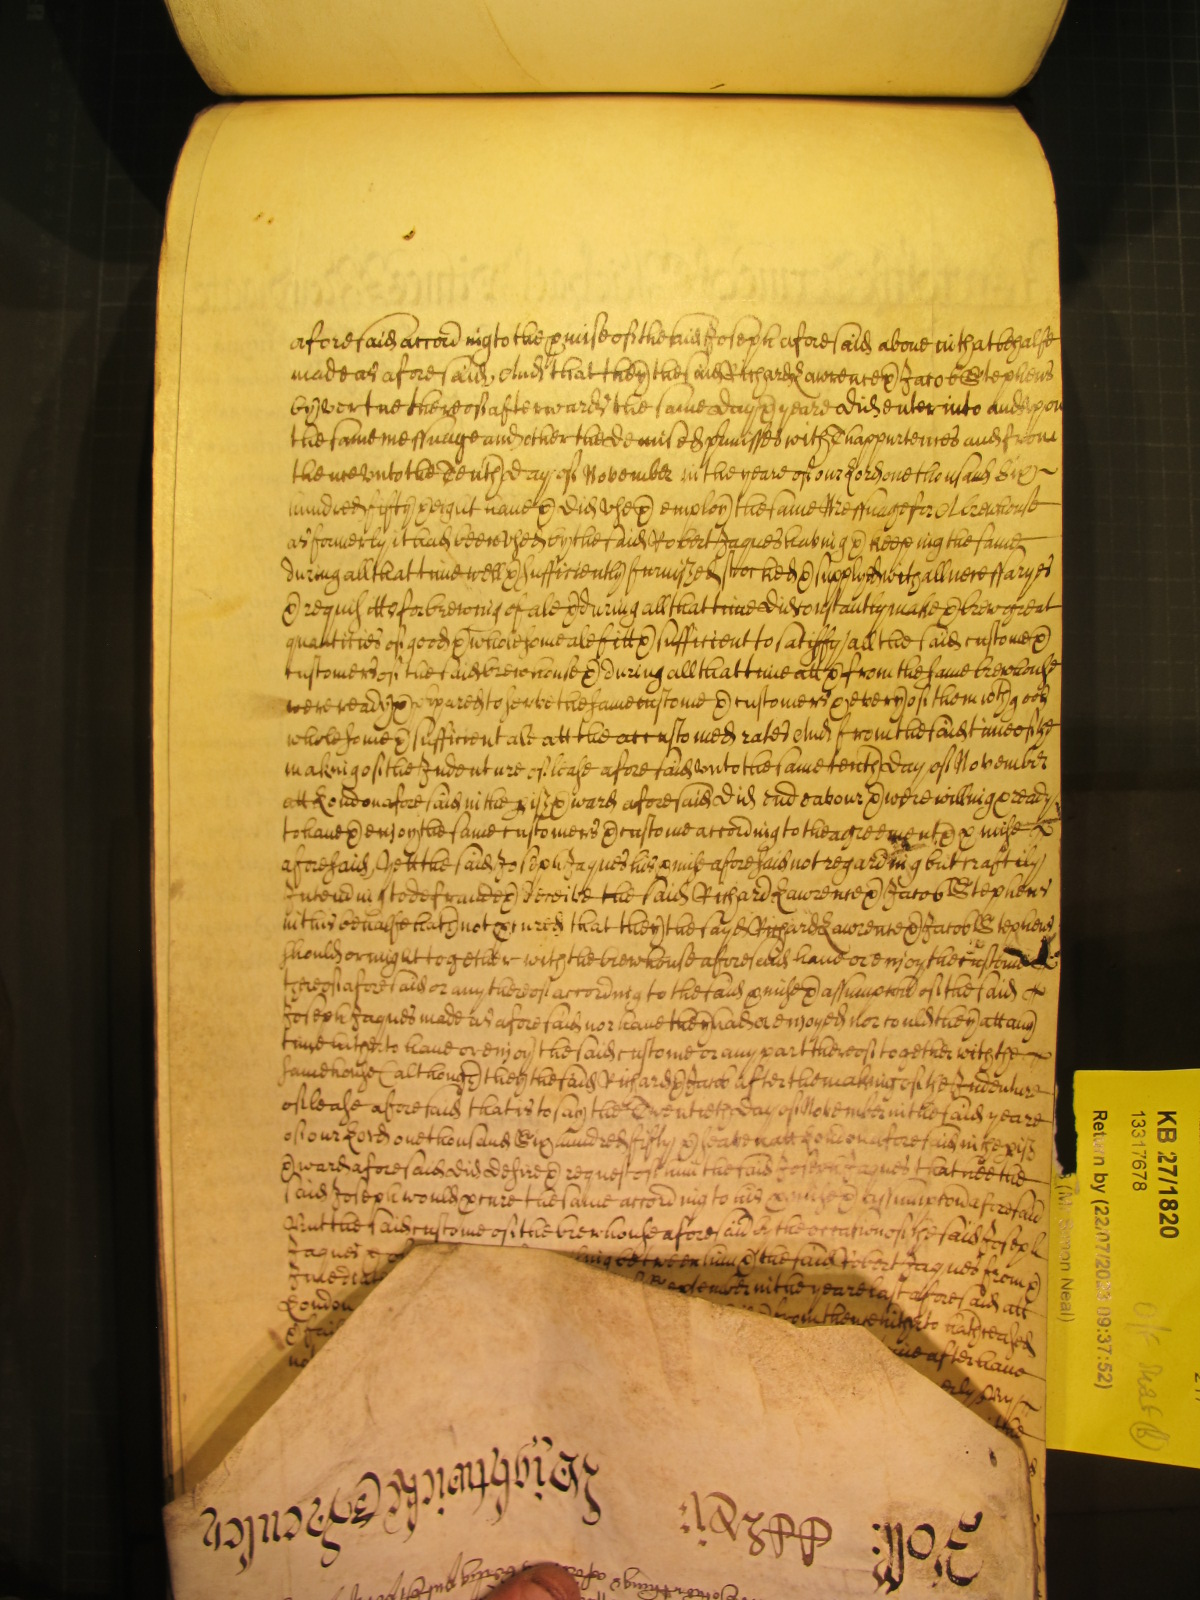 aforesaid according to the pmise of the said Joseph aforesaid above in that behalfe
made as aforesaid, And that they the said Richard Lawrence & Jacob Stephens
by vertue thereof afterwards the same day & yeare did enter into and upon
the same messuage and other the demised pmisses with Thappurtences and from
thence unto the Tenth day of November in the yeare of our Lord one thousand Six
hundred fifty & eight have & did use & employ the same Messuage for A brewhouse
as formerly it had been used by the said Robert Jaques having & keeping the same
during all that time well & sufficiently furnished stocked & supplied with all necessaryes
& requisitts for brewing of ale & during all that time did constantly make & brew great
quantities of good & wholesome ale fitt & sufficient to satisfy all the said custome &
customers of the said brewhouse & during all that time att & from the same brewhouse
were ready & prepared to serve the same custome & customers & every of them with good
wholesome & sufficient ale att the accustomed rates And from the said time of the
making of the Indenture of lease aforesaid unto the same tenth day of November
att London aforesaid in the pish & ward aforesaid did endeavour & were willing & ready
to have & enjoy the same customers & custome according to the agreement & pmise
aforesaid, Yett the said Joseph Jaques his pmise aforesaid not regarding but craftily
Intending to defraude & deceive the said Richard Lawrence & Jacob Stephens
in this behalfe hath not pcured that they the sayd Richard Lawrence & Jacob Stephens
should or might together with the brewhouse aforesaid have or enjoy the custome
thereof aforesaid or any thereof according to the said pmise & assumption of the said
Joseph Jaques made as aforesaid nor have they had or enjoyed nor could they att any
time hitherto have or enjoy the said custome or any part thereof together with the
same house (although they the said Richard & Jacob after the making of the Indenture
of lease aforesaid that is to say the Twentieth day of November in the said yeare
of our Lord one thousand Six hundred fifty & seaven att London aforesaid in the pish
& ward aforesaid did desire & request of him the said Joseph Jaques that hee the
said Joseph would pcure the same according to his pmise & assumption aforesaid
But the said custome of the brewhouse aforesaid by the occation of the said Joseph
Jaques between him & the said Robert Jaques from &
Imediat September in the yeare last aforesaid att
London from thence hitherto hath ceased
& after have
no
the
Roll:
Wightwicke &
KB 27/1820
13317678
Return by (22/07/2023 09:37:52)
(Mr Simon Neal)